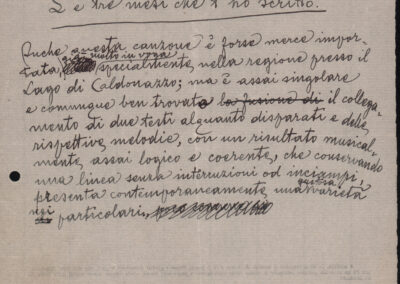 È tre mesi che t'ho scritto.
Anche questa canzone è forse merce impor-
già molto in voga
tata, specialmente, nella regione presso il
Lago di Caldonazzo; ma è assai singolare
e comunque ben trovato la fusione di il collega-
mento di due testi alquanto disparati e delle
rispettive melodie, con un risultato musical-
mente assai logico e coerente, che conservando
una linea senza interruzioni od inciampi,
presenta contemporaneamente una varietà
nei particolari.